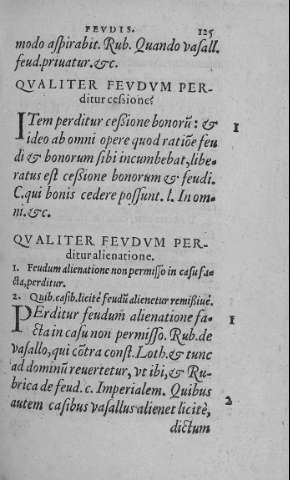 FEVDIS. 125
modo aspirabit. Rub. Quando vasall.
feud. priuatur. &c.
QVALITER FEVDVM PER-
ditur cessione?
ITem perditur cessione bonorū: & 1
ideo ab omni opere quod ratiōe feu
di & bonorum sibi incumbebat, libe-
ratus est cessione bonorum & feudi.
C. qui bonis cedere possunt. l. In om-
ni. &c.
QVALITER FEVDVM PER-
ditur alienatione.
1. Feudum alienatione non permisso in casu fa-
cta, perditur.
2. Quib. casib. licitè feudū alienetur remissiuè.
PErditur feudum alienatione fa- 1
cta in casu non permisso. Rub. de
vasallo, qui cōtra const. Loth. & tunc
ad dominū reuertetur, vt ibi, & Ru-
brica de feud. c. Imperialem. Quibus 2
autem casibus vasallus alienet licitè,
dictum